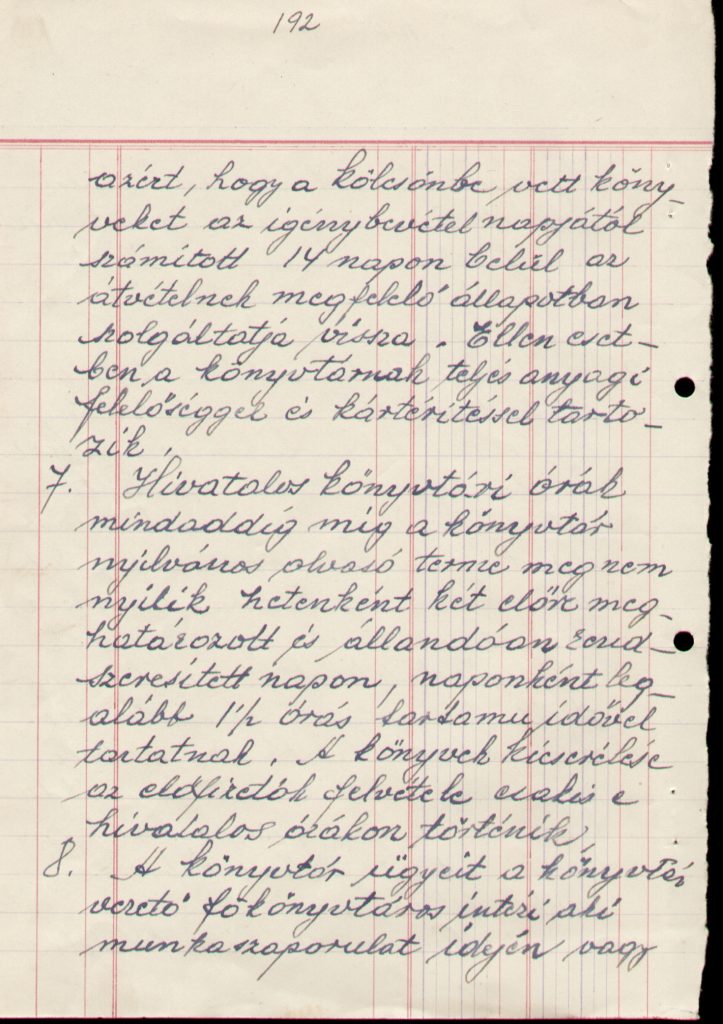 192
azért, hogy a kölcsönbe vett köny-
veket az igénybevétel napjától
számított 14 napon belül az
átvételnek megfelelő állapotban
szolgáltatja vissza. Ellen eset-
ben a könyvtárnak teljes anyagi
felelőséggel és kártérítéssel tarto-
zik.
7. Hivatalos könyvtári órák
mindaddig míg a könyvtár
nyilvános olvasó terme meg nem
nyílik hetenként két előre meg-
határozott és állandóan rend-
szeresített napon, naponként leg-
alább 1 1/2 órás tartamu idővel
tartatnak. A könyvek kicserélése
az előfizetők felvétele csakis e
hivatalos órákon történik.
8. A könyvtár ügyeit a könyvtár
vezető főkönyvtáros intézi aki
munkaszaporulat idején vagy